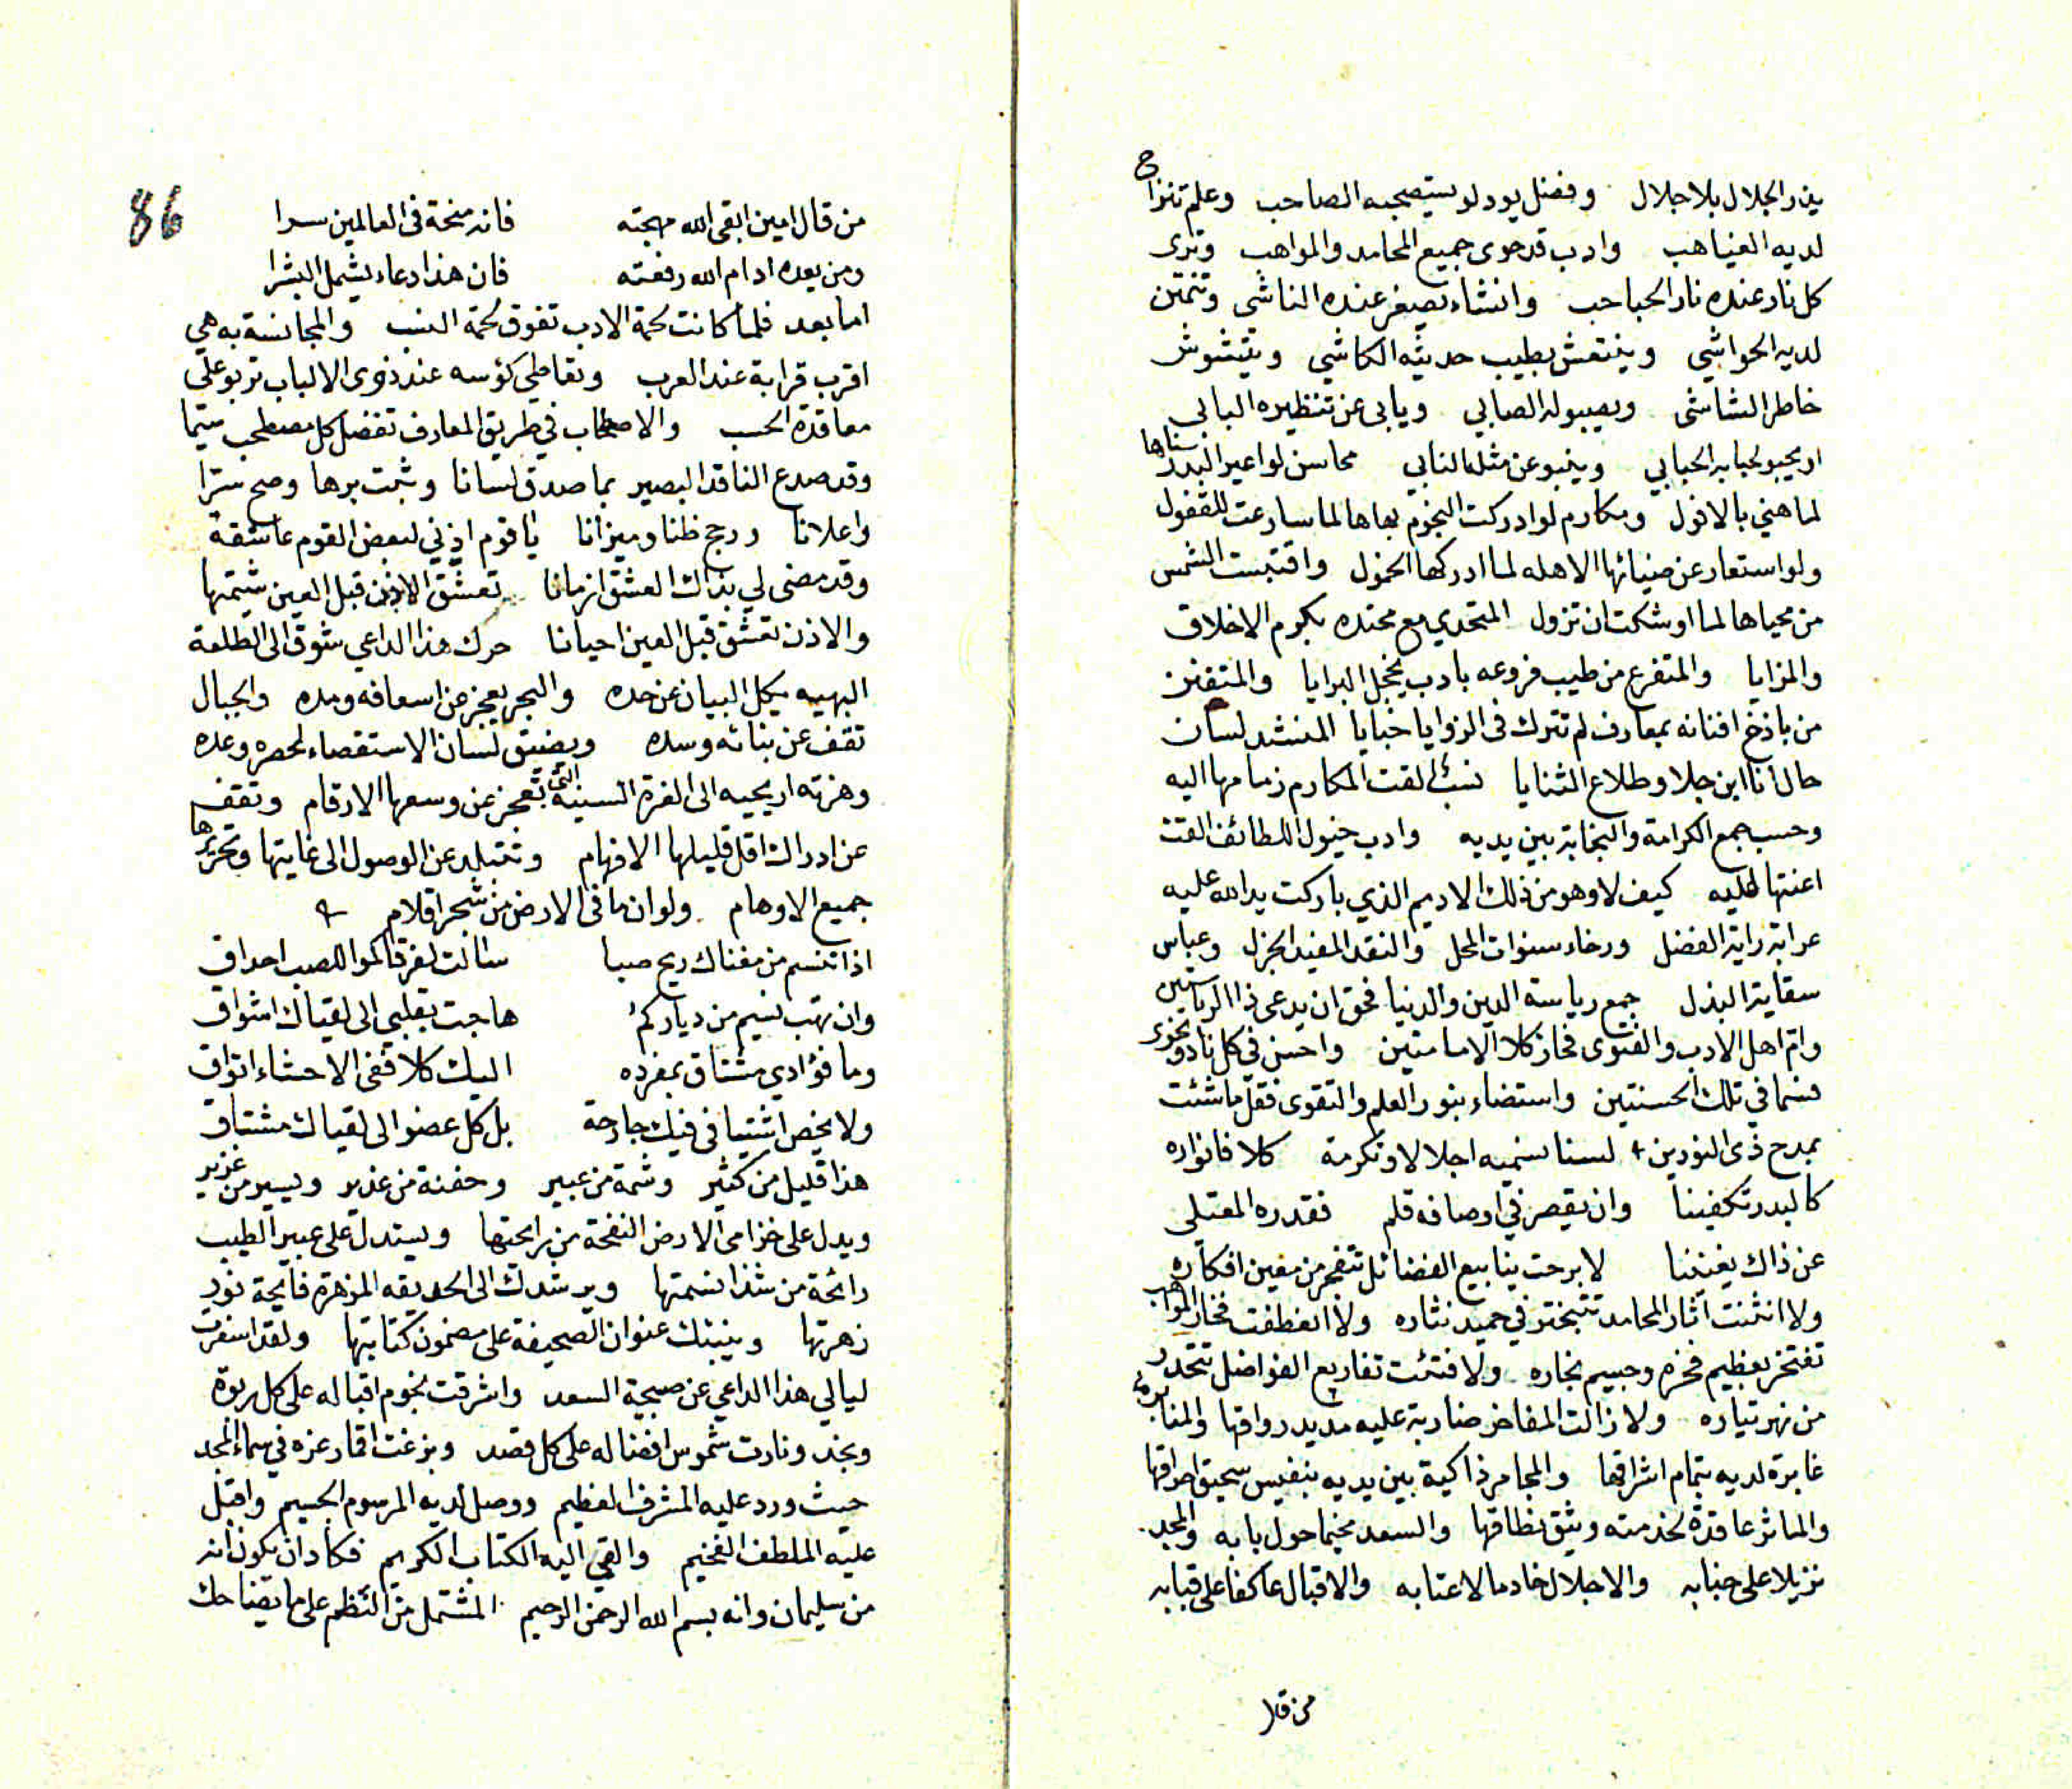 يذر الجلال بلا جلال وفضل يود لو يستصحبه الصاحب وعلم تنزاح
لديه الغياهب وادب قد حوى جميع المحامد والمواهب وترى
كل نار عنده نار الحباحب وانشاء يصغر عنده الناشى وتتمتن
لديه الحواشي وينتعش بطيب حديثه الكاشي ويتشوش
خاطر الشاشى ويصبو له الصابي ويابى عن تنظيره البابى
او يحبو لحبابه الحبابي وينبو عن مثله النابي محاسن لو اعير البدر سناها
لما هني بالافول ومكارم لو ادركت النجوم بهاها لما سارعت للقفول
ولو استعار عن ضيائها الاهله لما ادركها الخمول واقتبست الشمس
من محياها لما اوشكت ان تزول المتحدي مع محتده بكرم الاخلاق
والمزايا والمتفرع من طيب فروعه بادب يخجل البرايا والمتفنن
من باذخ افنانه بمعارف لم تترك فى الزوايا خبايا المنشد لسان
حال انا ابن جلا وطلاع الثنايا نسب القت المكارم زمامها اليه
وحسب جمع الكرامة والنجابة بين يديه وادب خيول اللطائف القت
اعنتها عليه كيف لا وهو من ذلك الاديم الذي باركت يد الله عليه
عرابة راية الفضل ورخاء سنوات المحل والنقد المفيد الجزل وعباس
سقاية البذل جمع رياسة الدين والدنيا فحق ان يدعى ذا الرياستين
وام اهل الادب والفتوى فحاز كلا الامامتين واحسن في كل ناد ونجوى
فسما في تلك الحسنتين واستضاء بنور العلم والتقوى فقل ما شئت
بمدح ذى النورين لسنا نسميه اجلالا وتكرمة كلا فانواره
كالبدر تكفينا وان يقصر في اوصافه قلم فقدره المعتلى
عن ذاك يغنينا لا برحت ينابيع الفضائل تتفجر من معين افكاره
ولا انثنت آثار المحامد تتبختر في حميد نثاره ولا انعطفت فخار المواهب
تفتخر بعظيم فخره وجسيم نجاره ولا فتئت تفاريع الفواضل تتحدر
من نهر تياره ولا زالت المفاخر ضاربة عليه مديد رواقها والمنابر
غابرة لديه بتمام اشراقها والمجامر ذاكية بين يديه بنفيس سحيق احراقها
والماثر عاقدة لخدمته وثيق نطاقها والسعد مخيما حول بابه والمجد
نزيلا على جنابه والاجلال خادما لاعتابه والاقبال عاكفا على قبابه
من قال
86
من قال امين ابقى الله مهجته فانه منحة فى العالمين سرا
ومن يعده ادام الله رفعته فان هذا دعاء يشمل البشرا
اما بعد فلما كانت لحمة الادب تفوق لحمة النسب والمجانسة به هي
اقرب قرابة عند العرب وتعاطي كؤسه عند ذوى الالباب تربو على
معاقدة الحسب والاصطحاب في طريق المعارف تفضل كل مصطحب سيما
وقد صدع الناقد البصير بما صدق لسانا وثبت برها وصح سرا
واعلانا ورجح ظنا وميزانا يا قوم اذني لبعض القوم عاشقة
وقد مضى لي بذاك العشق ازمانا تعشق الاذن قبل العين شيمتها
والاذن تعشق قبل العين احيانا حرك هذا الداعي شوق الى الطلعة
البهيه يكل البيان عن حده والبحر يعجز عن اسعافه ومده والجبال
تقف عن بنائه وسده ويضيق لسان الاستقصاء لحصره وعده
وهزته اريحيه الى الغرة السنية التى تعجز عن وسعها الارقام وتقف
عن ادراك اقل قليلها الافهام وتتبلد عن الوصول الى غايتها وتحررها
جميع الاوهام ولو ان ما فى الارض من شجر اقلام
اذا تنسم من مغناك ريح صبا سالت لفرقاكموا للصب احداق
وان تهب نسيم من دياركم هاجت بقلبي الى لقياك اشواق
وما فؤادي مشتاق بمفرده اليك كلا ففى الاحشاء اتواق
ولا يخص اشتياقى فيك جارحة بل كل عضو الى لقياك مشتاق
هذا قليل من كثير وشمة من عبير وحفنة من غدير ويسير من غزير
ويدل على خزامى الارض النفحة من رائحتها ويستدل على عبير الطيب
رائحة من شذا نسمتها ويرشدك الى الحديقه المزهرة فايحة نور
زهرتها وينبئك عنوان الصحيفة على مضمون كتابتها ولقد اسفرت
ليالي هذا الداعي عن صبيحة السعد واشرقت نجوم اقباله على كل ربوة
ونجد ونارت شموس افضاله على كل قصد وبزغت اقمار عزه في سماء المجد
حيث ورد عليه المشرف العظيم ووصل لديه المرسوم الجسيم واقبل
عليه الملطف الفخيم والقي اليه الكتاب الكريم فكاد ان يكون انه
من سليمان وانه بسم الله الرحمن الرحيم المشتمل من النظم على ما يضاحك